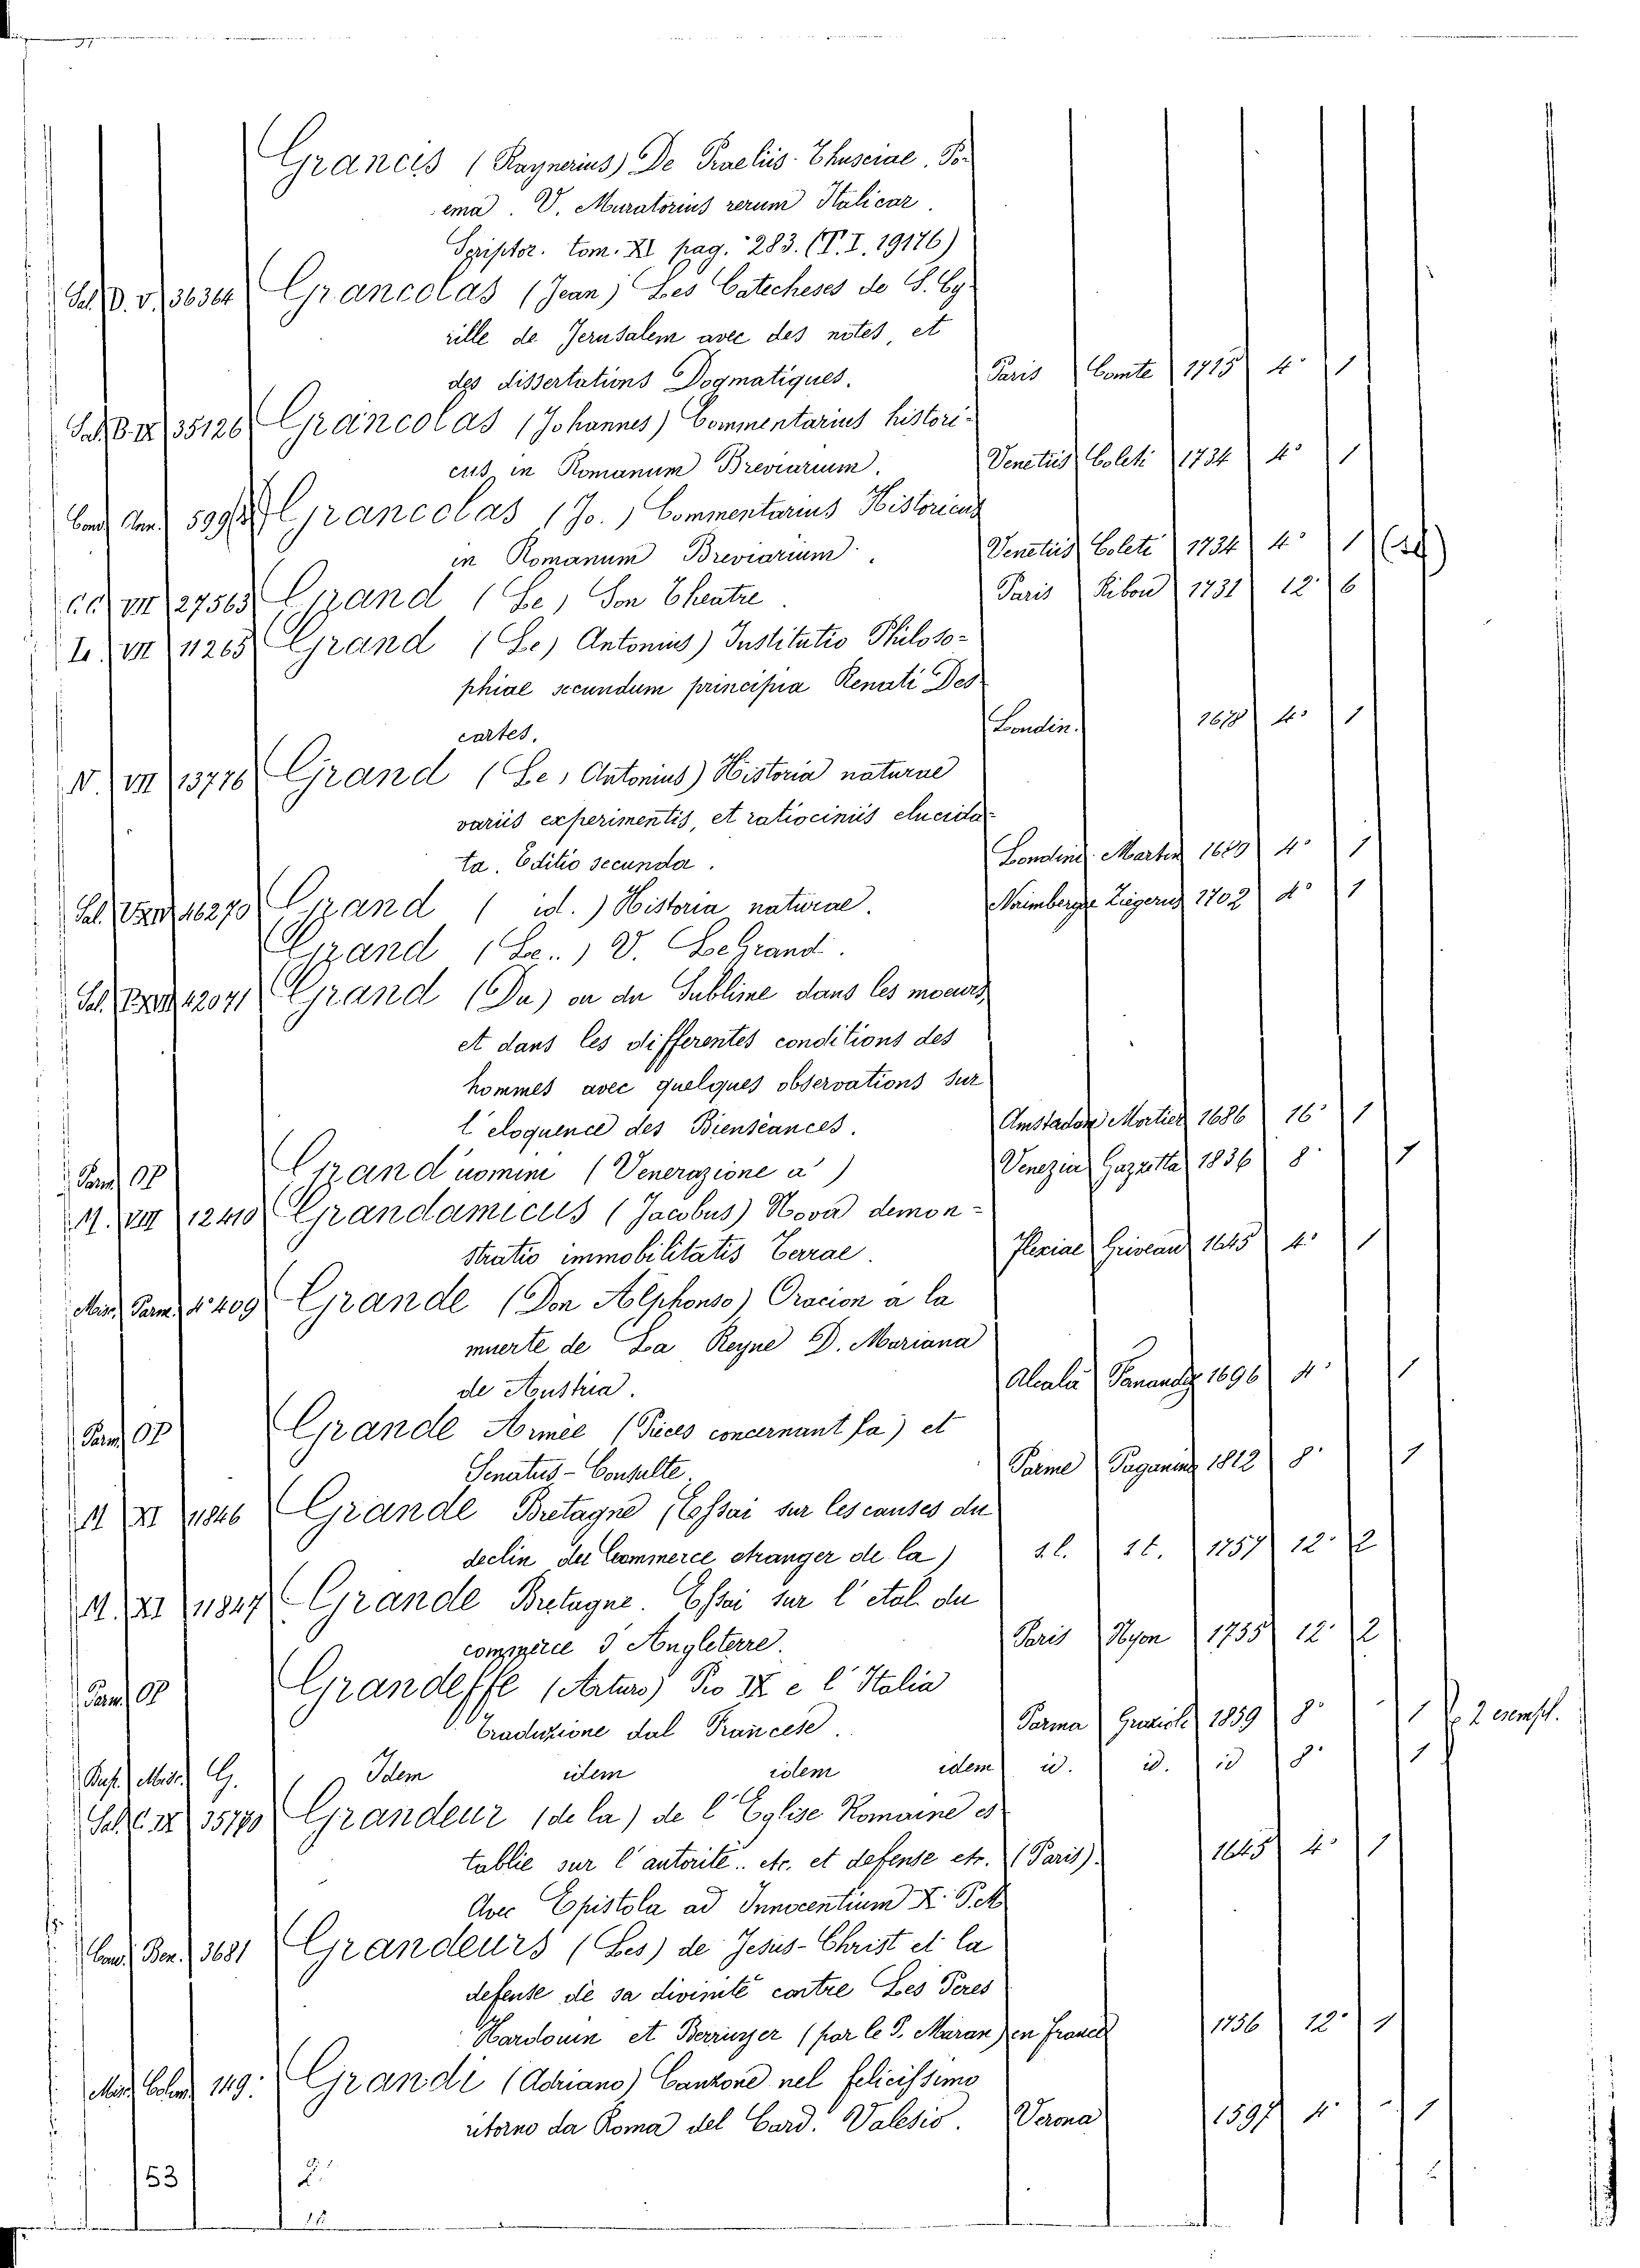 Grancis (Raynerius) De Praeliis Thusciae. Po-
ema. V. Muratorius rerum Italicar.
Scriptor. tom. XI pag. 283. (T. I. 19176)
Sal. D. V. 36364 Grancolas (Jean) Les Catecheses de S. Cy-
rille de Jerusalem avec des notes, et
des dissertations Dogmatiques. Paris Comte 1715 4° 1
Sal. B. IX 35126 Grancolas (Johannes) Commentarius histori-
cus in Romanum Breviarium. Venetiis Coleti 1734 4° 1
Cand. Ann. Grancolas (Jo.) Commentarius Historicus
in Romanum Breviarium. Venetiis Coleti 1734 4° 1
VII 27565 Grand (Le) Son Theatre. Paris Ribou 1731 12° 6
L. VII 11265 Grand (Le) Antonius) Institutio Philoso-
phiae secundum principia Renati Des
cartes. Londin. 1678 4° 1
N. VII 13776 Grand (Le, Antonius) Historia naturae
variis experimentis, et ratiociniis elucida-
ta. Editio secunda. Londini Martin 1680 4° 1
Sal. 46270 Grand ( id. ) Historia naturae. Norimbergae Ziegerus 1702 4° 1
Grand (Le..) V. Le Grand.
Sal. 42071 Grand (Du) ou du Sublime dans les moeurs,
et dans les differentes conditions des
hommes avec quelques observations sur
l'eloquence des Bienséances. Amstadam Mortier 1686 16° 1
Parm. OP Grand'uomini (Venerazione a') Venezia Gazzetta 1836 8° 1
M. VIII 12410 Grandamicus (Jacobus) Nova demon-
stratio immobilitatis Terrae. Flexiae Griveau 1645 4° 1
Misc. Parm. 4° 409 Grande (Don Alphonso) Oracion a la
muerte de La Reyne D. Mariana
de Austria. Alcalá 1696 4° 1
Parm. OP Grande Armée (Pièces concernant la) et
Senatus-Consulte. Parme Paganini 1812 8° 1
M XI 11846 Grande Bretagne (Essai sur les causes du
declin du Commerce etranger de la) s. l. s. t. 1757 12° 2
M. XI 11847 Grande Bretagne. Essai sur l'etat du
commerce d'Angleterre. Paris Nyon 1755 12° 2
Parm. OP Grandeffe (Arturo) Pio IX e l'Italia
Traduzione dal Francese. Parma Grazioli 1859 8° 1 2 esempl.
G. Idem idem idem idem id. id. id 8° 1
Sal. C. IX 35770 Grandeur (de la) de l'Eglise Romaine es-
tablie sur l'autorité.. etc. et defense etc. (Paris). 1645 4° 1
Avec Epistola ad Innocentium X. P. M.
Cand. Ben. 3681 Grandeurs (Les) de Jesus-Christ et la
defense de sa divinité contre Les Peres
Hardouin et Berruyer (par le P. Maran) en France 1756 12° 1
Misc. Colom. 149. Grandi (Adriano) Canzone nel felicissimo
ritorno da Roma del Card. Valesio. Verona 1597 4° 1
153 2